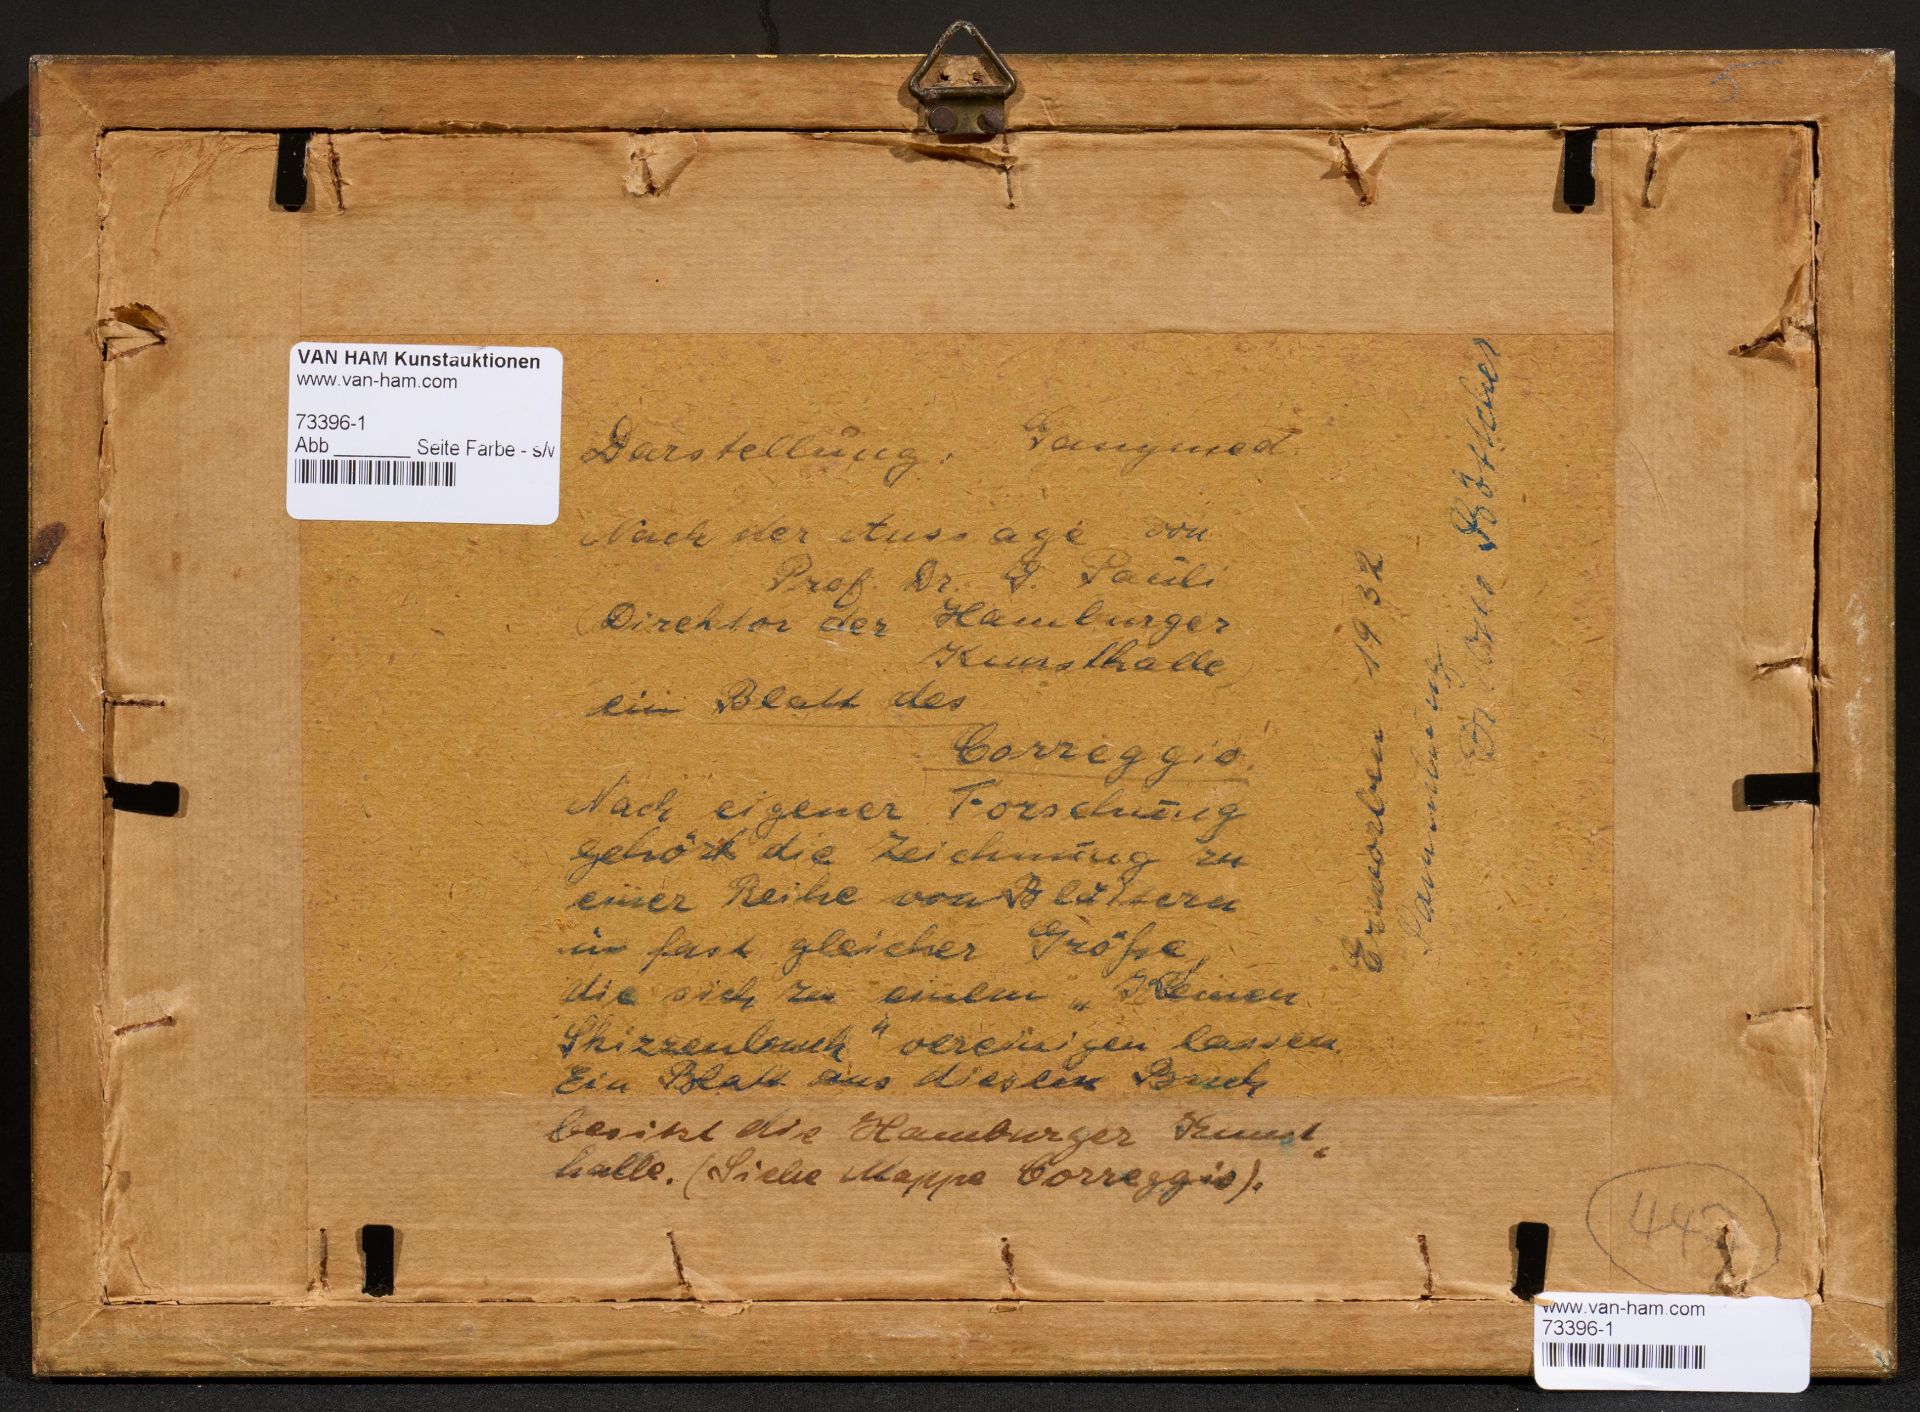 5
VAN HAM Kunstauktionen
www.van-ham.com
73396-1
Abb _______ Seite Farbe - s/w
Darstellung: Ganymed.
Nach der Aussage von
Prof. Dr. G. Pauli
(Direktor der Hamburger
Kunsthalle)
ein Blatt des
Correggio.
Nach eigener Forschung
gehört die Zeichnung zu
einer Reihe von Blättern
in fast gleicher Größe,
die sich zu einem „Kleinen
Skizzenbuch" vereinigen lassen.
Ein Blatt aus diesem Buch
besitzt die Hamburger Kunst-
halle. (Siehe Mappe Correggio).
Erworben 1932
Sammlung
Böttcher
www.van-ham.com
73396-1